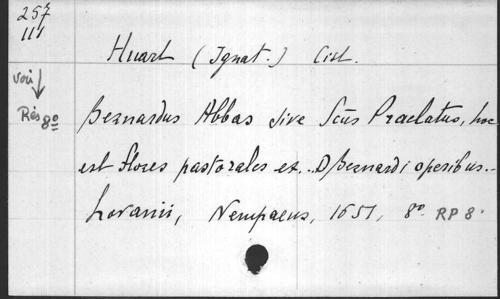 257
111
Huart (Ignat.) Cist.
voir
Rés 8º
Bernardus Abbas sive Scus Praelatus, hoc
est Flores pastorales ex.. D Bernardi operibus..
Lovanii, Nempaeus, 1651, 8º RP 8.